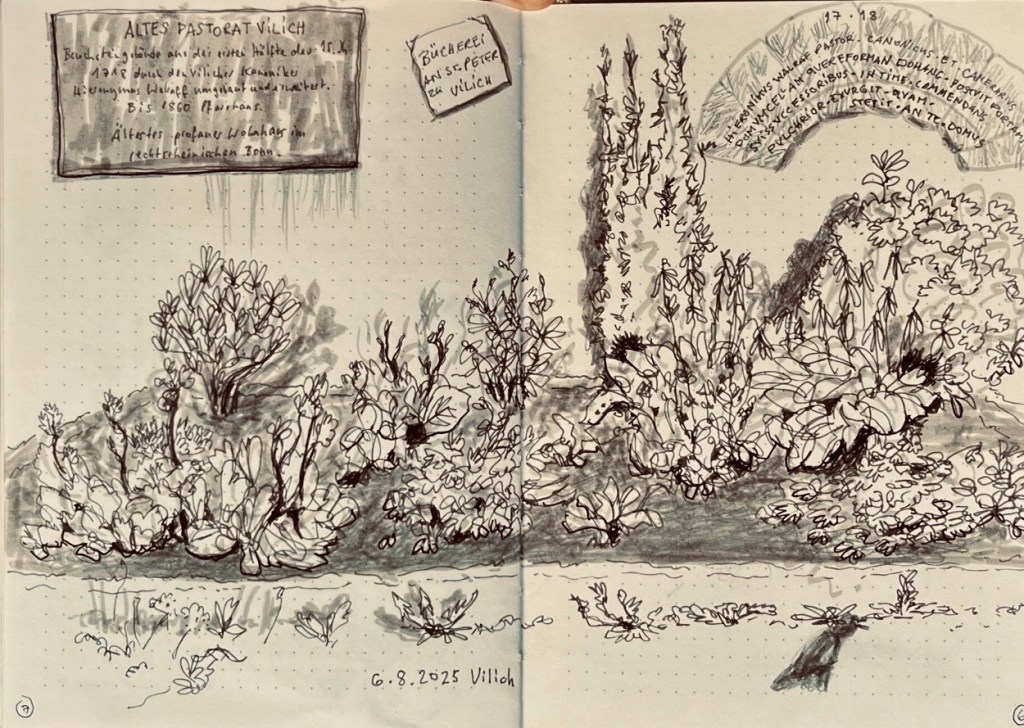 ALTES PASTORAT VILICH
aus der ersten Hälfte des 15. Jh.
1718 durch den Vilicher Kanoniker
Hieronymus Walraff umgebaut und erweitert.
Bis 1860 Pfarrhaus.
Ältestes profanes Wohnhaus im
rechtsrheinischen Bonn.
BÜCHEREI
AN ST. PETER
ZU VILICH
17 · 18
HIERONIMUS WALRAF PASTOR · CANONICUS · ET CAMERARIUS
DOMUM CELLAM QUE REFORMAN DO HINC · POSUIT PORTAM
SUIS SUCCESSORIBUS · IN TIME COMMENDANS
PULCHRIOR · EXURGIT · QUAM ·
STETIT · ANTE · DOMUS
6.8.2025 Vilich
7